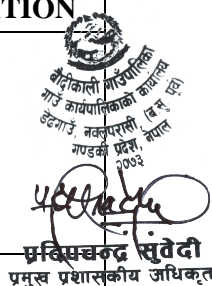 TION
बौदीकाली गाउँपालिका
गाउँ कार्यपालिकाको कार्यालय
डेढगाउँ, नवलपरासी (ब.सु.पूर्व)
गण्डकी प्रदेश, नेपाल
२०७३
प्रदिपचन्द्र सुवेदी
प्रमुख प्रशासकीय अधिकृत